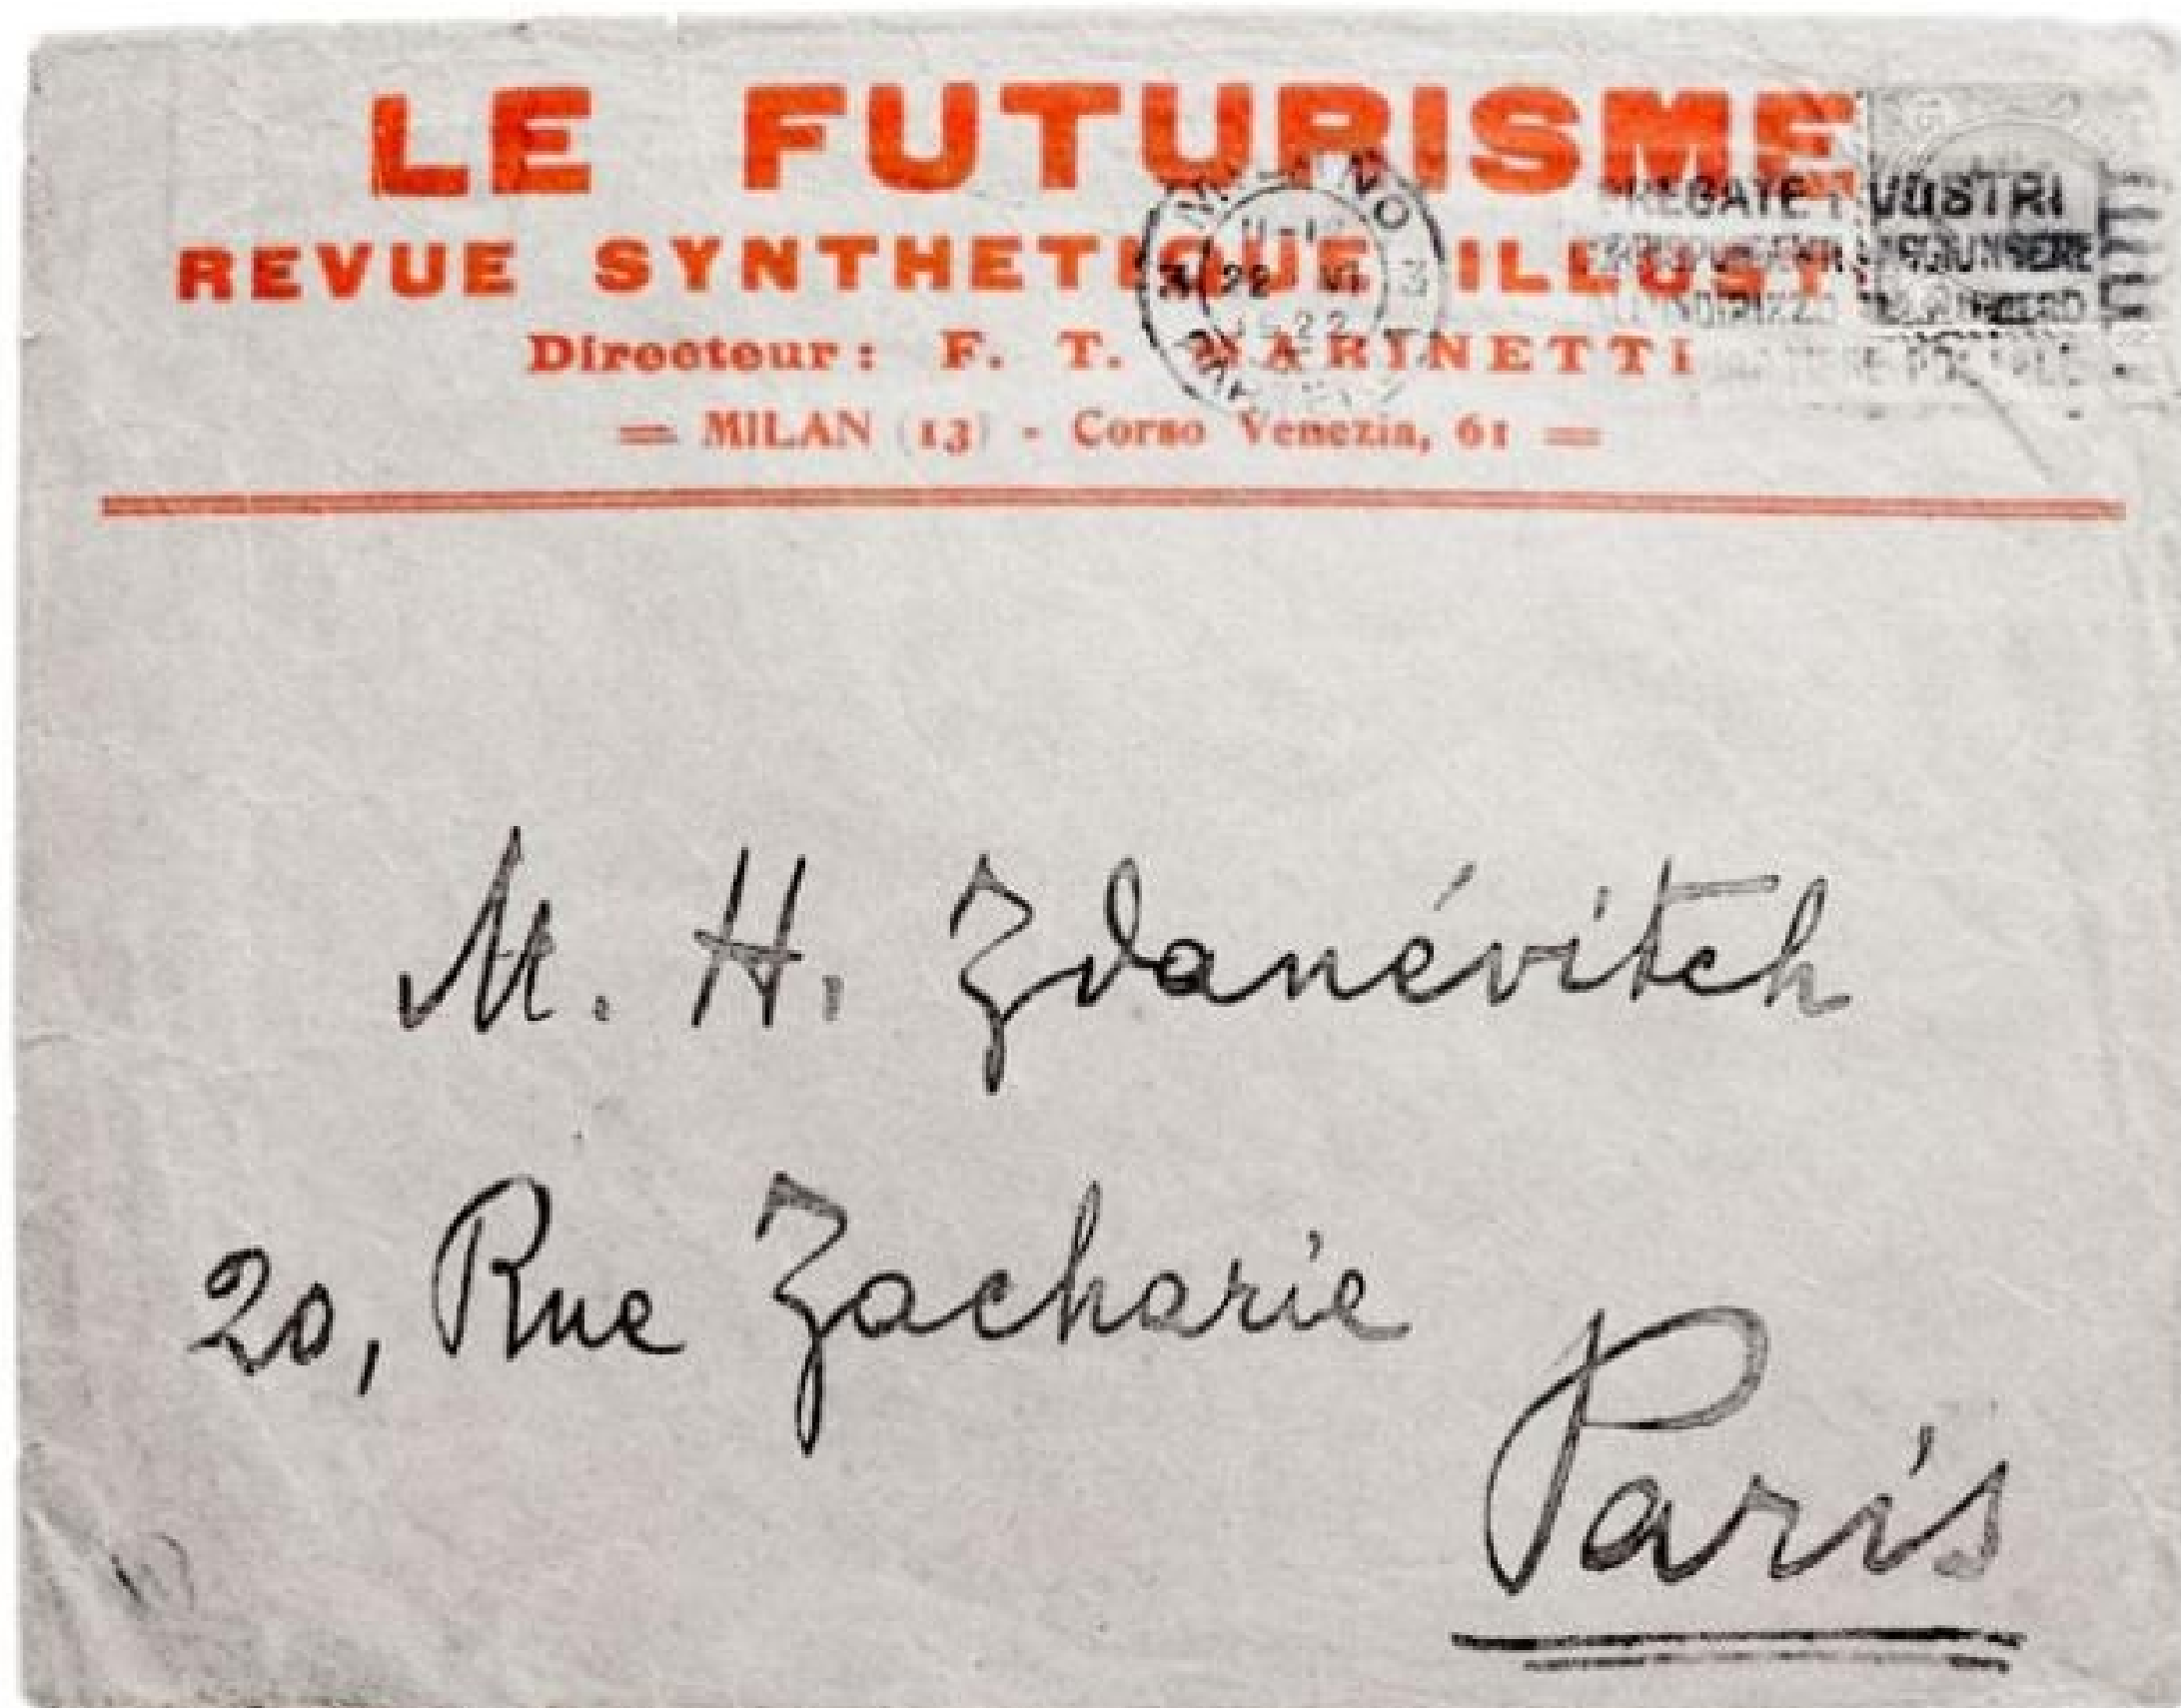 LE FUTURISME
REVUE SYNTHETIQUE ILLUST
Directeur: F. T. MARINETTI
= MILAN (13) - Corso Venezia, 61 =
MILANO
22 VI
1922
VOSTRI
M. H. Zdanévitch
20, Rue Zacharie
Paris